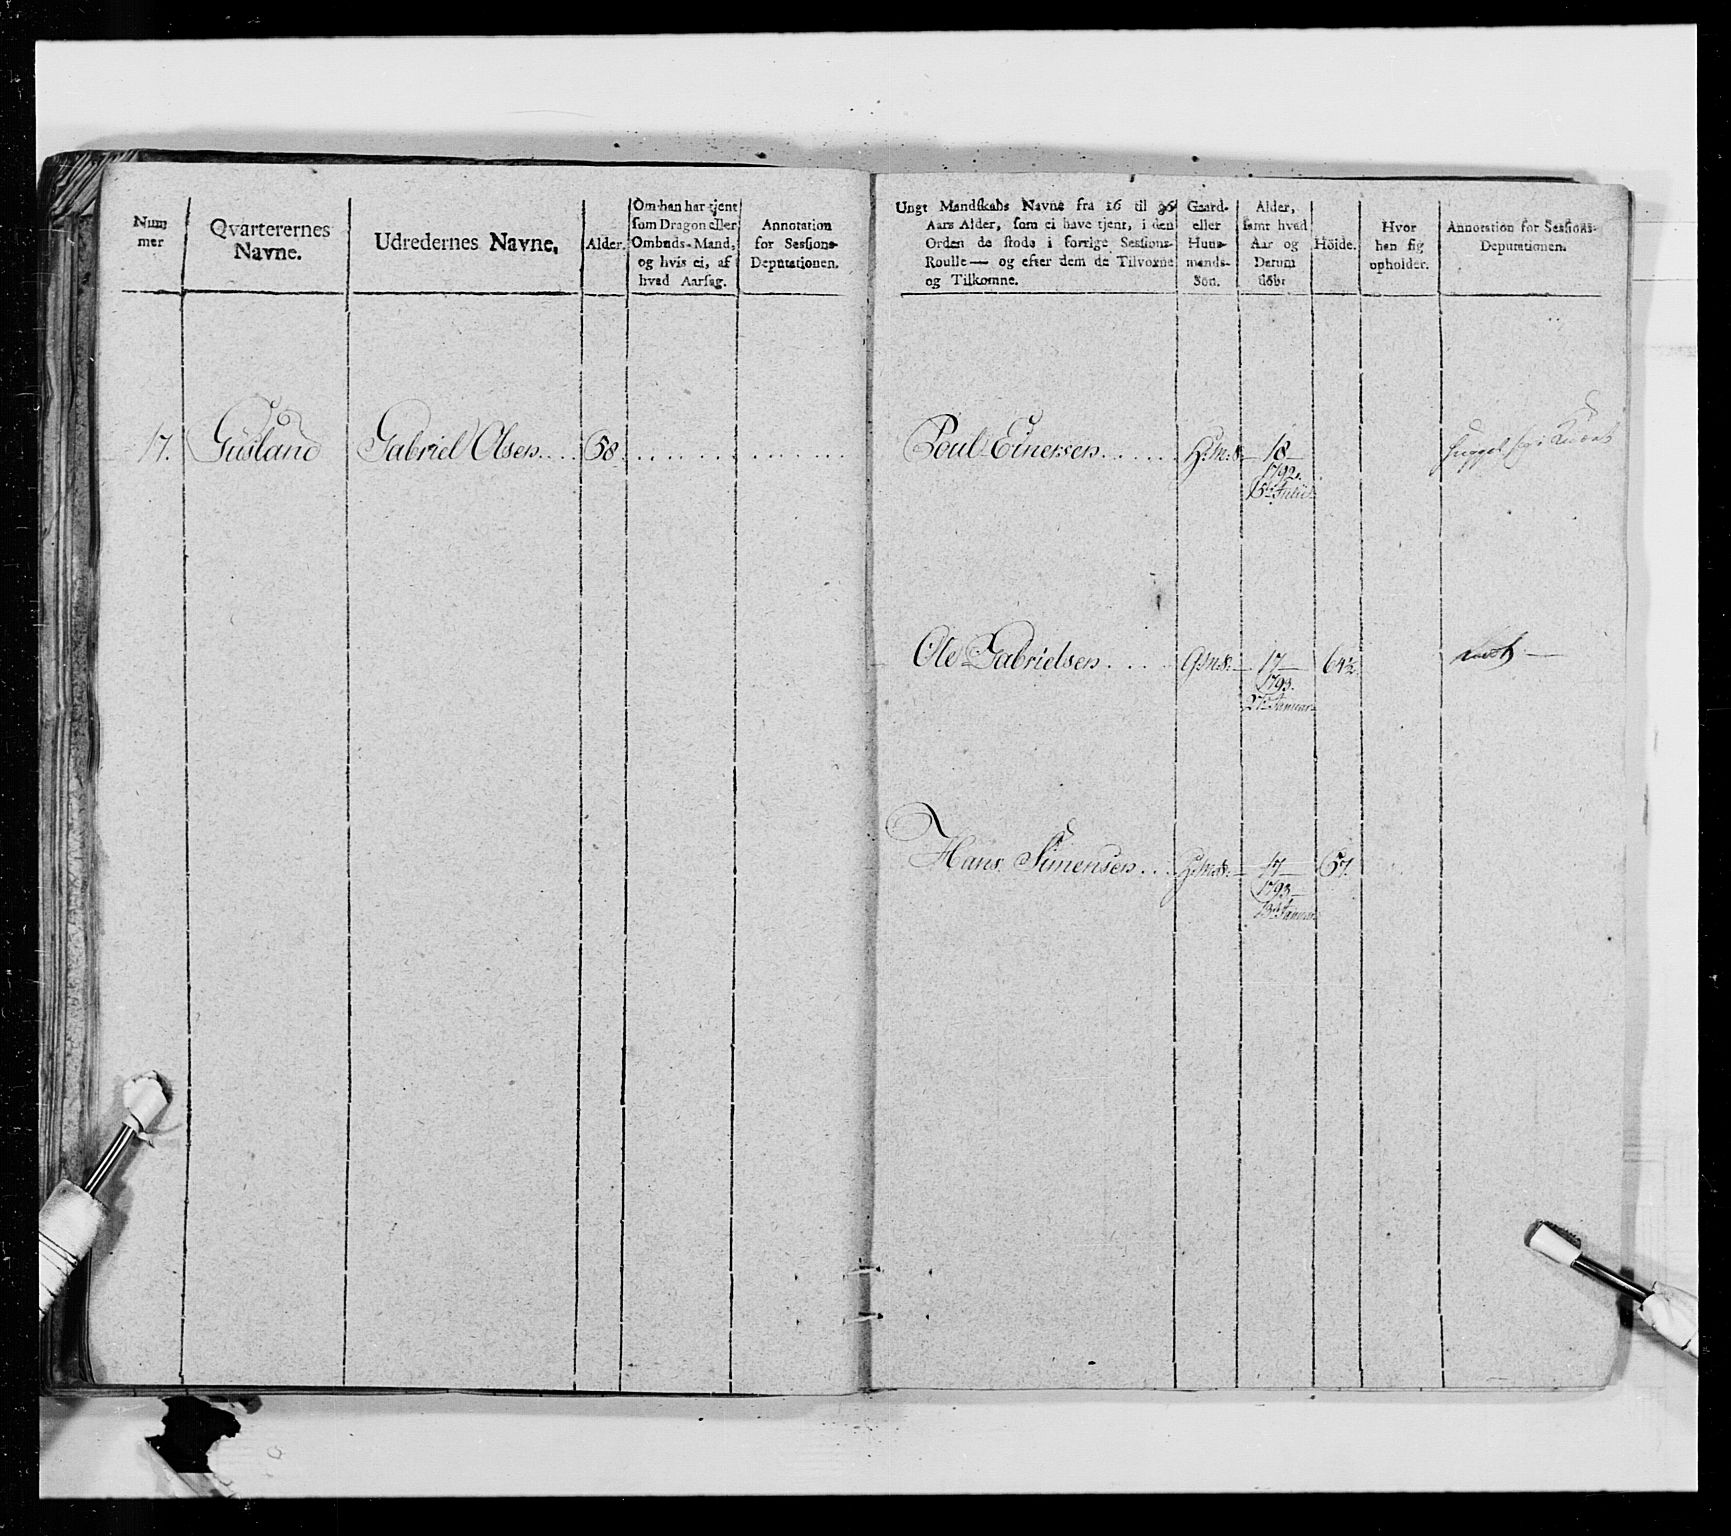 Num
mer
Qvarterernes
Navne.
Udredernes Navne.
Alder.
Om han har tjent
som Dragon eller
Ombuds-Mand,
og hvis ei, af
hvad Aarsag.
Annotation
for Sessions-
Deputationen.
Ungt Mandskabs Navne fra 16 til 36
Aars Alder, som ei have tjent, i den
Orden de stode i forrige Sessions-
Roulle — og efter dem de Tilvoxne
og Tilkomne.
Gaard-
eller
Huus-
mands-
Søn.
Alder,
samt hvad
Aar og
Datum
Höide.
Hvor
han sig
opholder.
Annotation for Sessions-
Deputationen.
17. Gusland Gabriel Olsen 58. Poul Einersen H:m:S. 18
1792.
15de Julii
Ole Gabrielsen G:m:S. 17 64½
1793.
27de Januar
Hans Simensen H:m:S. 17 57.
1793
13de Januar